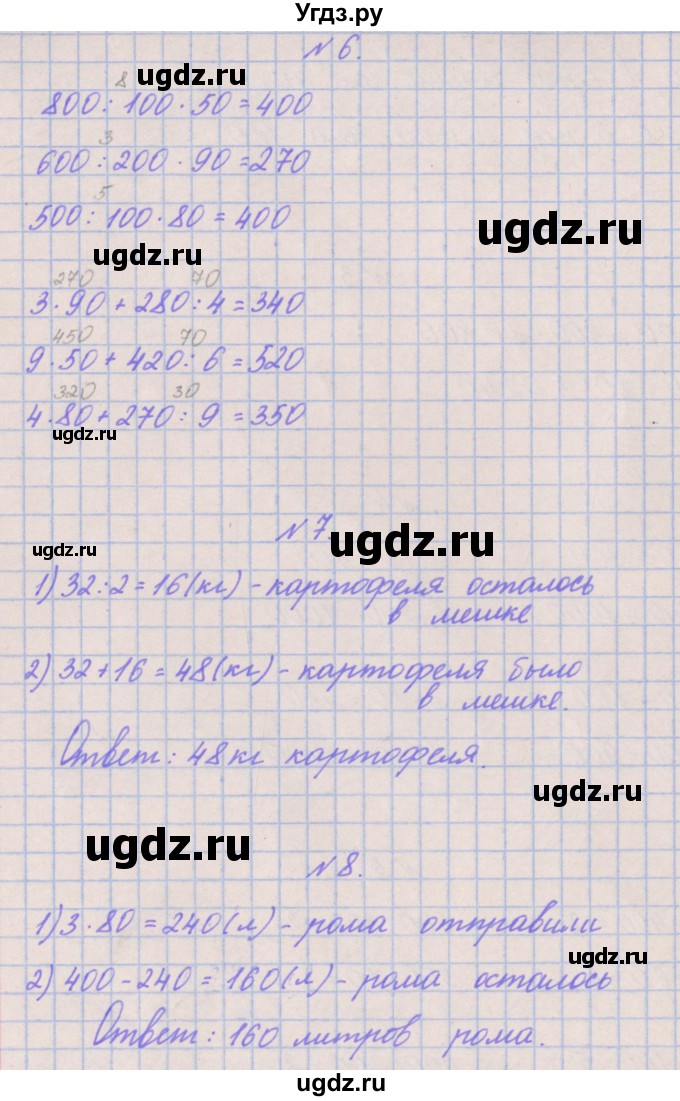 Угдз.ру
№ 6.
ugdz.ru
8
800 : 100 · 50 = 400
3
600 : 200 · 90 = 270
5
500 : 100 · 80 = 400
ugdz.ru
ugdz.ru
270 70
3 · 90 + 280 : 4 = 340
450 70
9 · 50 + 420 : 6 = 520
320 30
4 · 80 + 270 : 9 = 350
ugdz.ru
№ 7.
ugdz.ru
ugdz.ru
1) 32 : 2 = 16 (кг) - картофеля осталось
в мешке
2) 32 + 16 = 48 (кг) - картофеля было
в мешке.
Ответ: 48 кг картофеля.
ugdz.ru
ugdz.ru
№ 8.
1) 3 · 80 = 240 (л) - рома отправили
ugdz.ru
2) 400 - 240 = 160 (л) - рома осталось
Ответ: 160 литров рома.
ugdz.ru